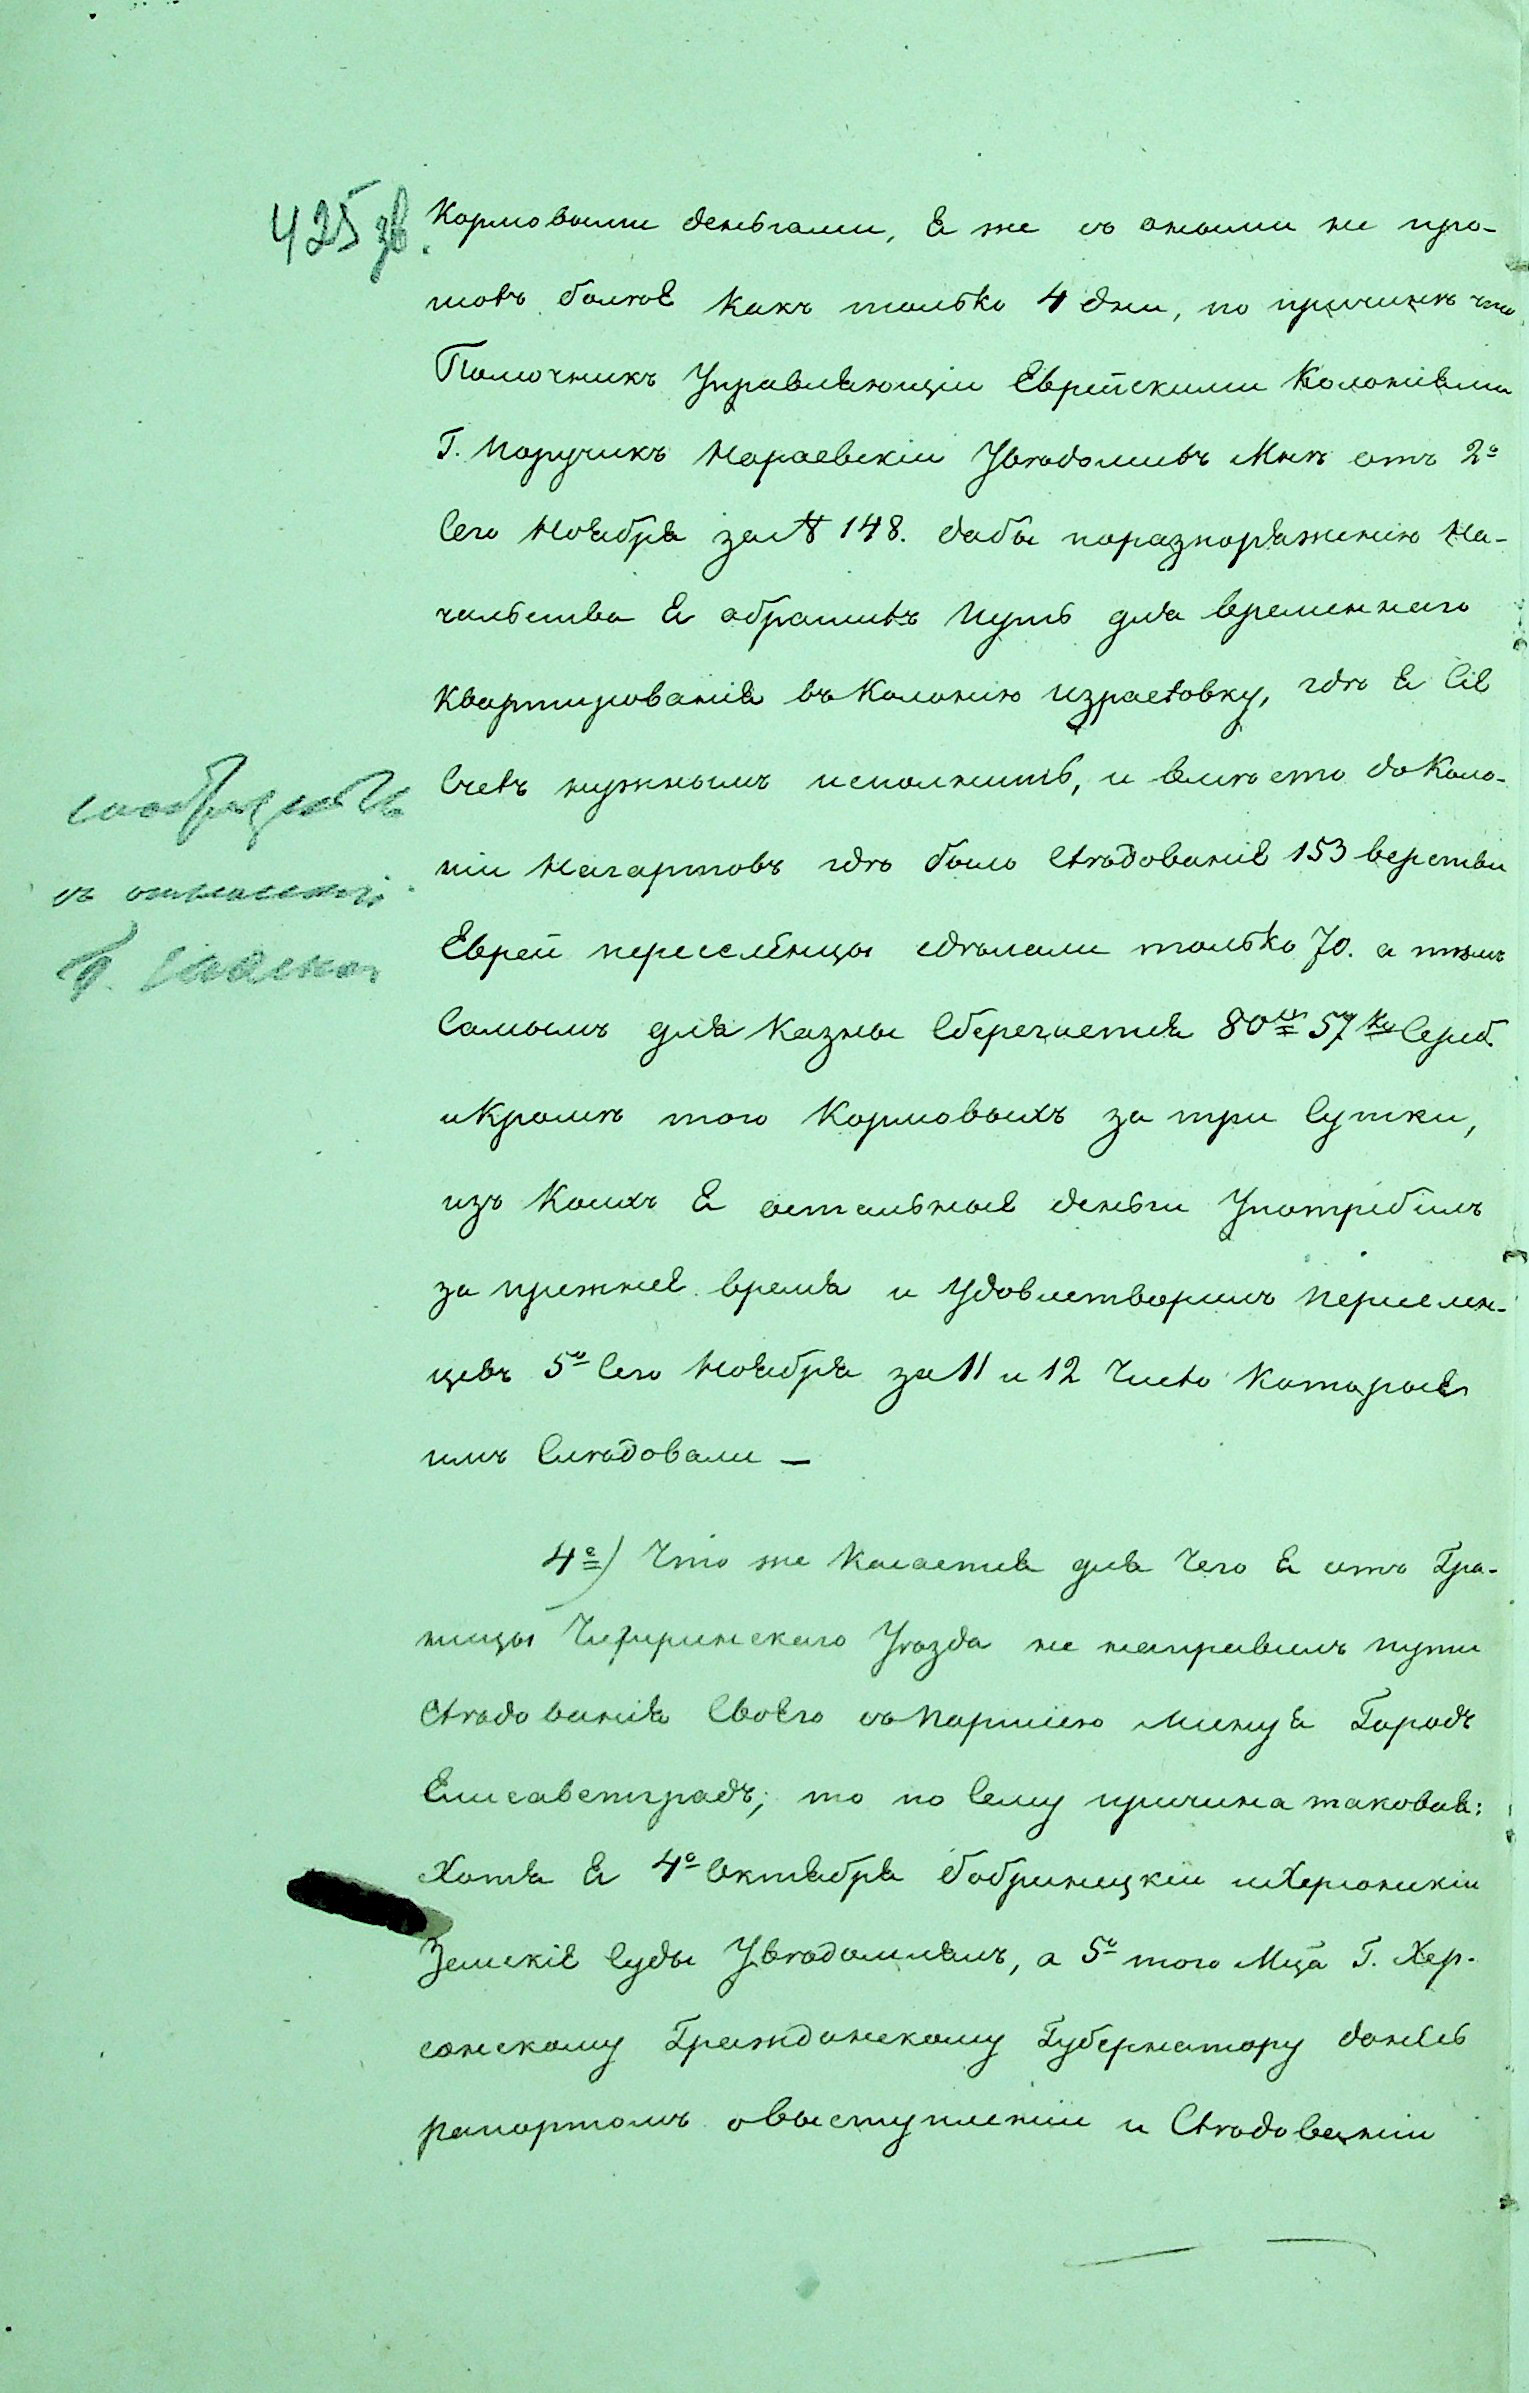 425 зв.
Кормовыми деньгами, Я же съ оными не про-
шовъ болѣе какъ только 4 дни, по причинѣ что
Помочникъ Управляющій Еврейскими Колоніями
Г. Поручикъ Нараевскій Увѣдомивъ Мнѣ отъ 2º
Сего Ноября за № 148. дабы поразпоряженію На-
чальства Я обративъ Путь для временнаго
Квартированія въ Колонію Израелевку, гдѣ Я Сіе
Счелъ нужнымъ исполнить, и вмѣсто до Коло-
ніи Нагартовъ гдѣ было Слѣдованіе 153 версты
Евреи переселенцы сдѣлали только 70. а тѣмъ
Самымъ для Казны Сберегается 80 57 ко Сереб.
и Кромѣ того Кормовыхъ за три Сутки,
изъ Коихъ Я остальные деньги Употребилъ
за прежнее время и Удовлетворилъ Переселен-
цевъ 5º Сего Ноября за 11 и 12 Число Которые
имъ Слѣдовали —
4º) Что же Касается для Чего Я отъ Гра-
ницы Чигиринскаго Уѣзда не направилъ пути
Слѣдованія Своего съ Партіею минуя Городъ
Елисаветградъ; то по Сему причина таковая:
Хотя Я 4º Октября Бобринецкіи и Херсонскіи
Земскіе Суды Увѣдомлялъ, а 5º того Мца Г. Хер-
сонскому Гражданскому Губернатору донесъ
рапортомъ о выступленіи и Слѣдованіи